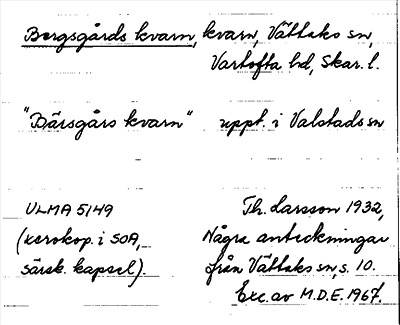 Bergsgårds kvarn, kvarn, Vättaks sn,
Vartofta hd, Skar. l.
"Bärsgårs kvarn" uppt. i Valstads sn
ULMA 5149
(xerokop. i SOA,
särsk. kapsel).
Th. Larsson 1932,
Några anteckningar
från Vättaks sn, s. 10.
Exc. av M.D.E. 1967.